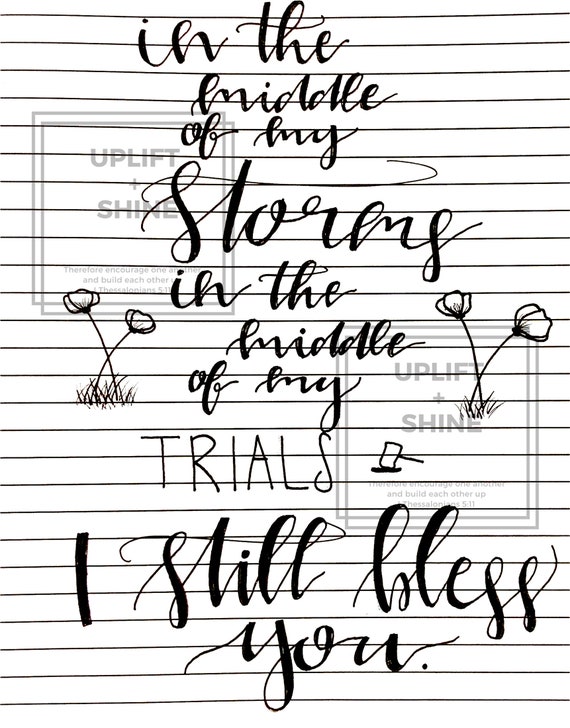 in the
middle
of my
UPLIFT
+
SHINE
Storms
Therefore encourage one another
and build each other up
1 Thessalonians 5:11
in the
middle
of my
UPLIFT
+
SHINE
TRIALS
Therefore encourage one another
and build each other up
1 Thessalonians 5:11
I still bless
you.